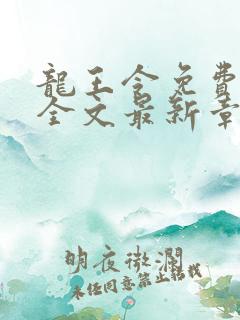 龍王令免費
全文最新章
明夜微瀾
未经同意禁止転載